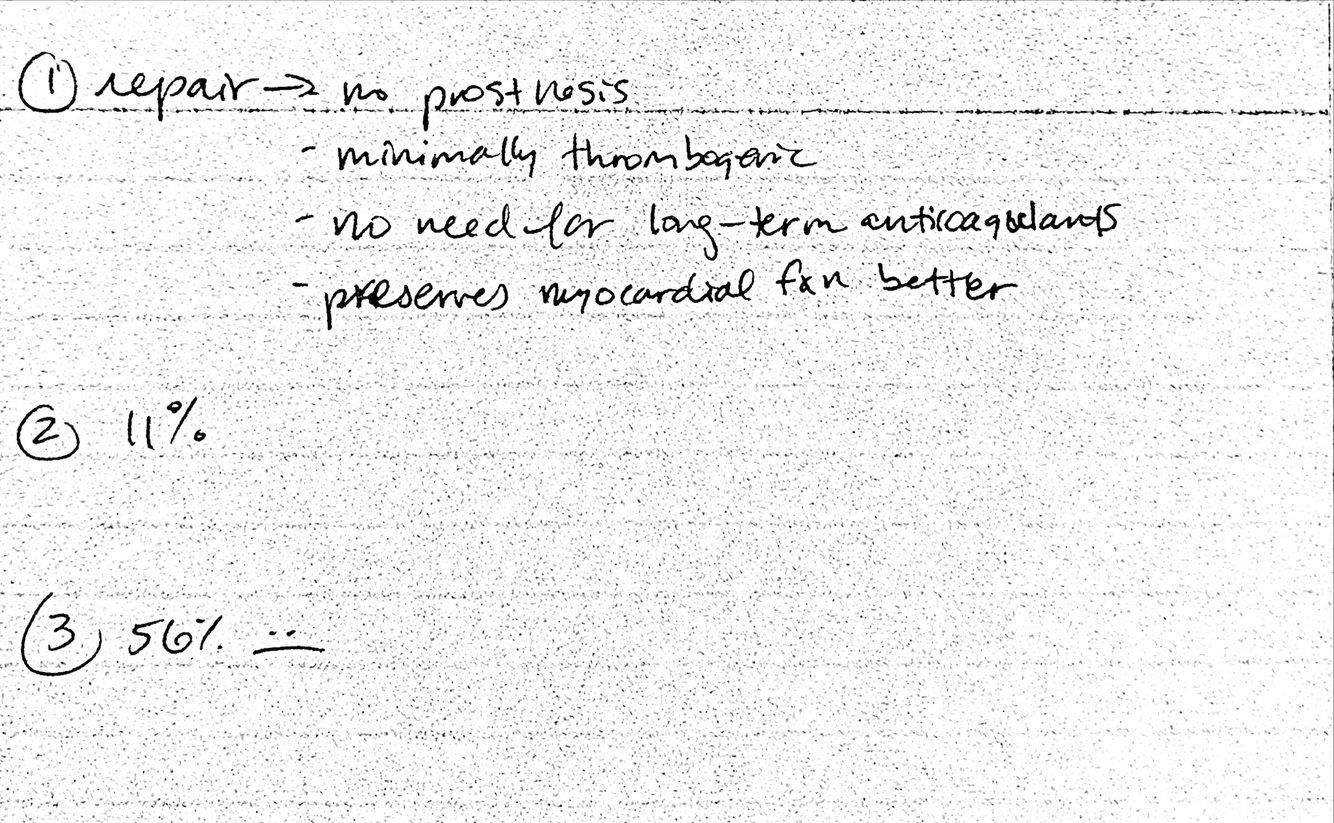 ① repair → no prosthesis
- minimally thrombogenic
- no need for long-term anticoagulants
- preserves myocardial fxn better
② 11%
③ 56% ..